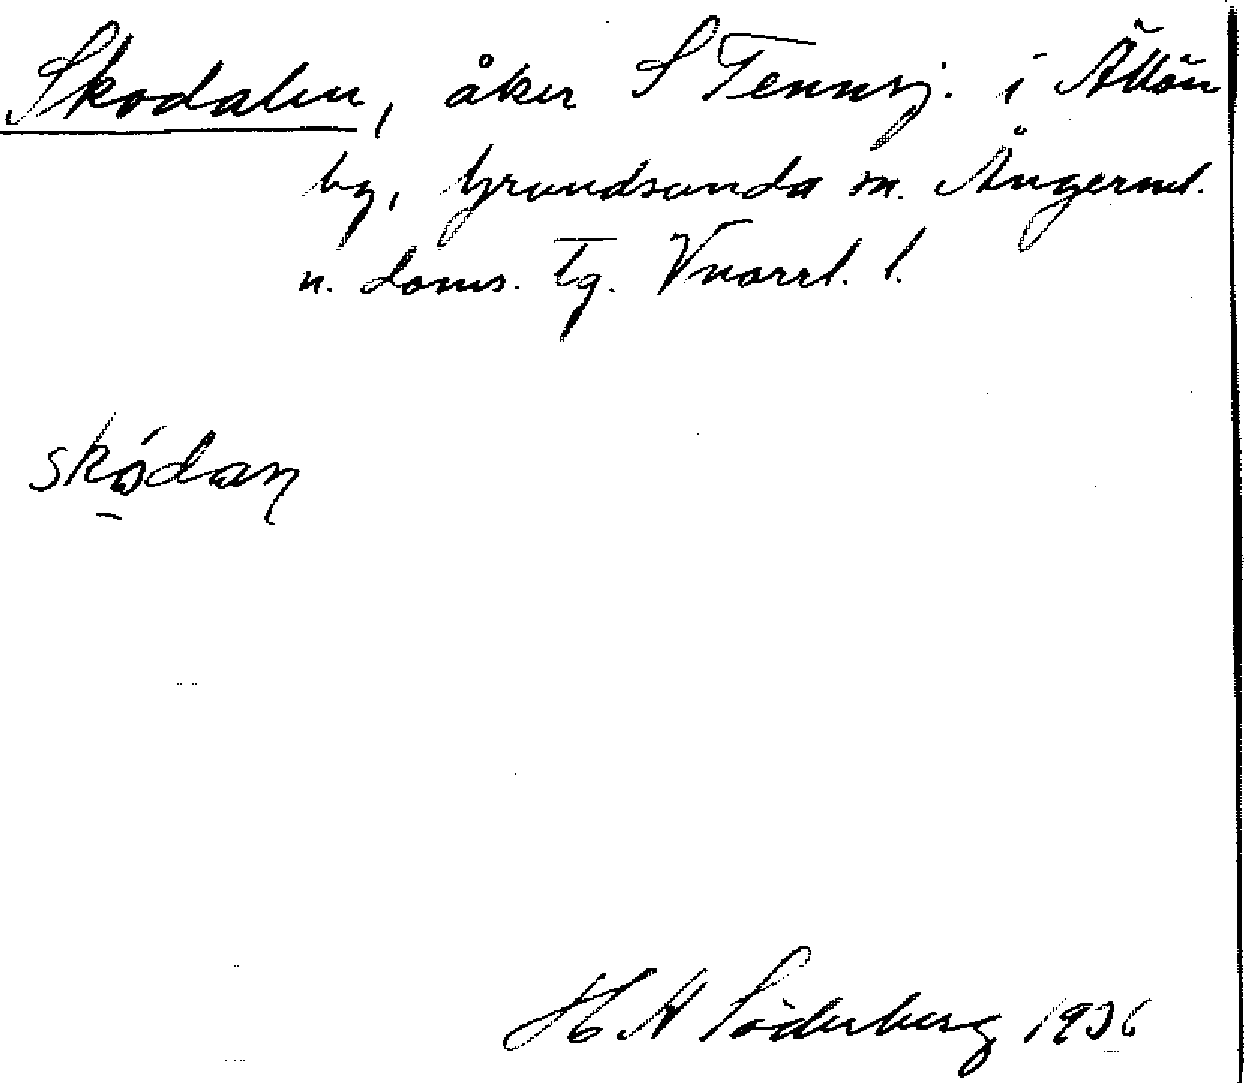 Skodalen, åker S Tennsj. i Ällön
by, Grundsunda sn. Ångerml.
n. doms. Tg. Vnorrl. l.
skódan
H H Söderberg 1936